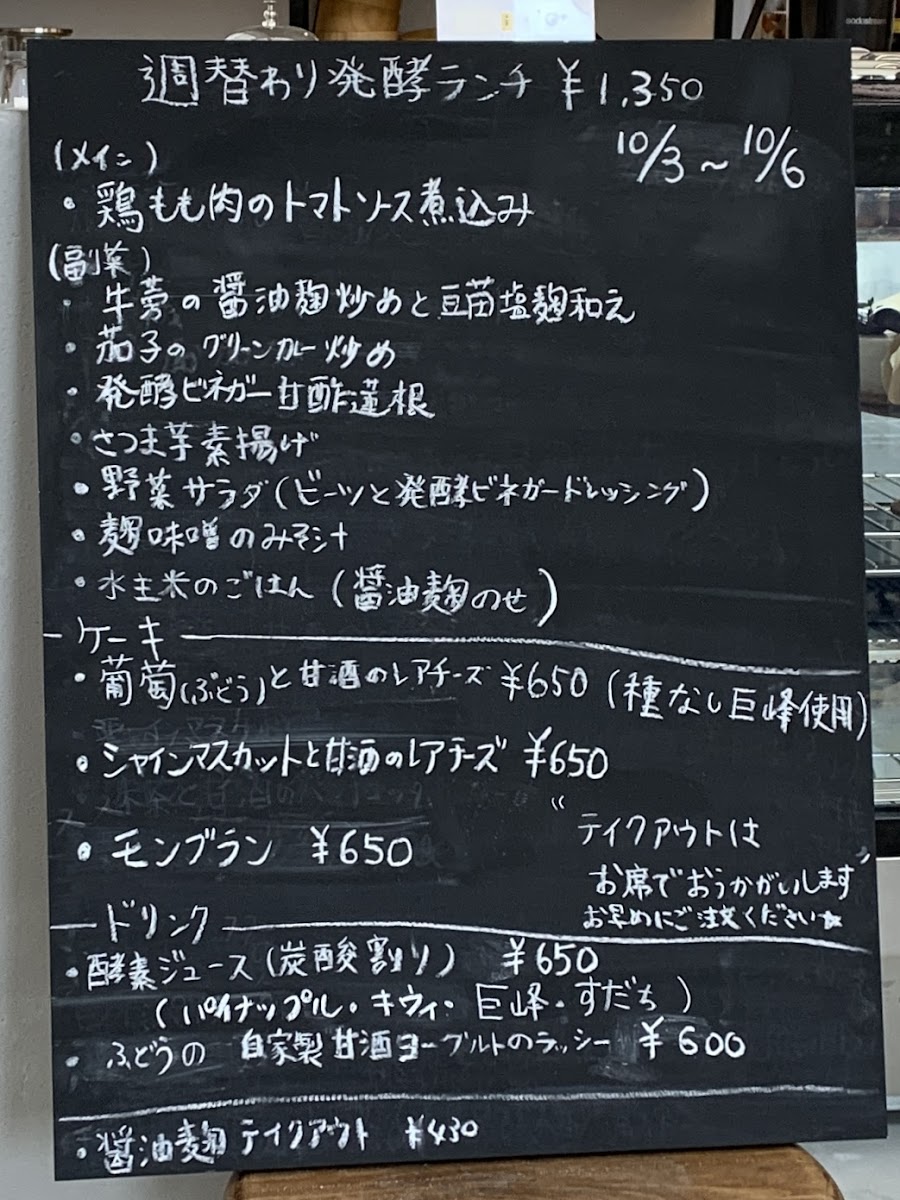 週替わり発酵ランチ ¥1,350
10/3~10/6
(メイン)
・鶏もも肉のトマトソース煮込み
(副菜)
・牛蒡の醤油麹炒めと豆苗塩麹和え
・茄子のグリーンカレー炒め
・発酵ビネガー甘酢蓮根
・さつま芋素揚げ
・野菜サラダ(ビーツと発酵ビネガードレッシング)
・麹味噌のみそ汁
・水主米のごはん(醤油麹のせ)
ケーキ
・葡萄(ぶどう)と甘酒のレアチーズ ¥650(種なし巨峰使用)
・シャインマスカットと甘酒のレアチーズ ¥650
・モンブラン ¥650
"テイクアウトは
お席でおうかがいします"
お早めにご注文ください
ドリンク
・酵素ジュース(炭酸割り) ¥650
(パイナップル・キウィ・巨峰・すだち)
・ぶどうの 自家製甘酒ヨーグルトのラッシー ¥600
・醤油麹テイクアウト ¥430